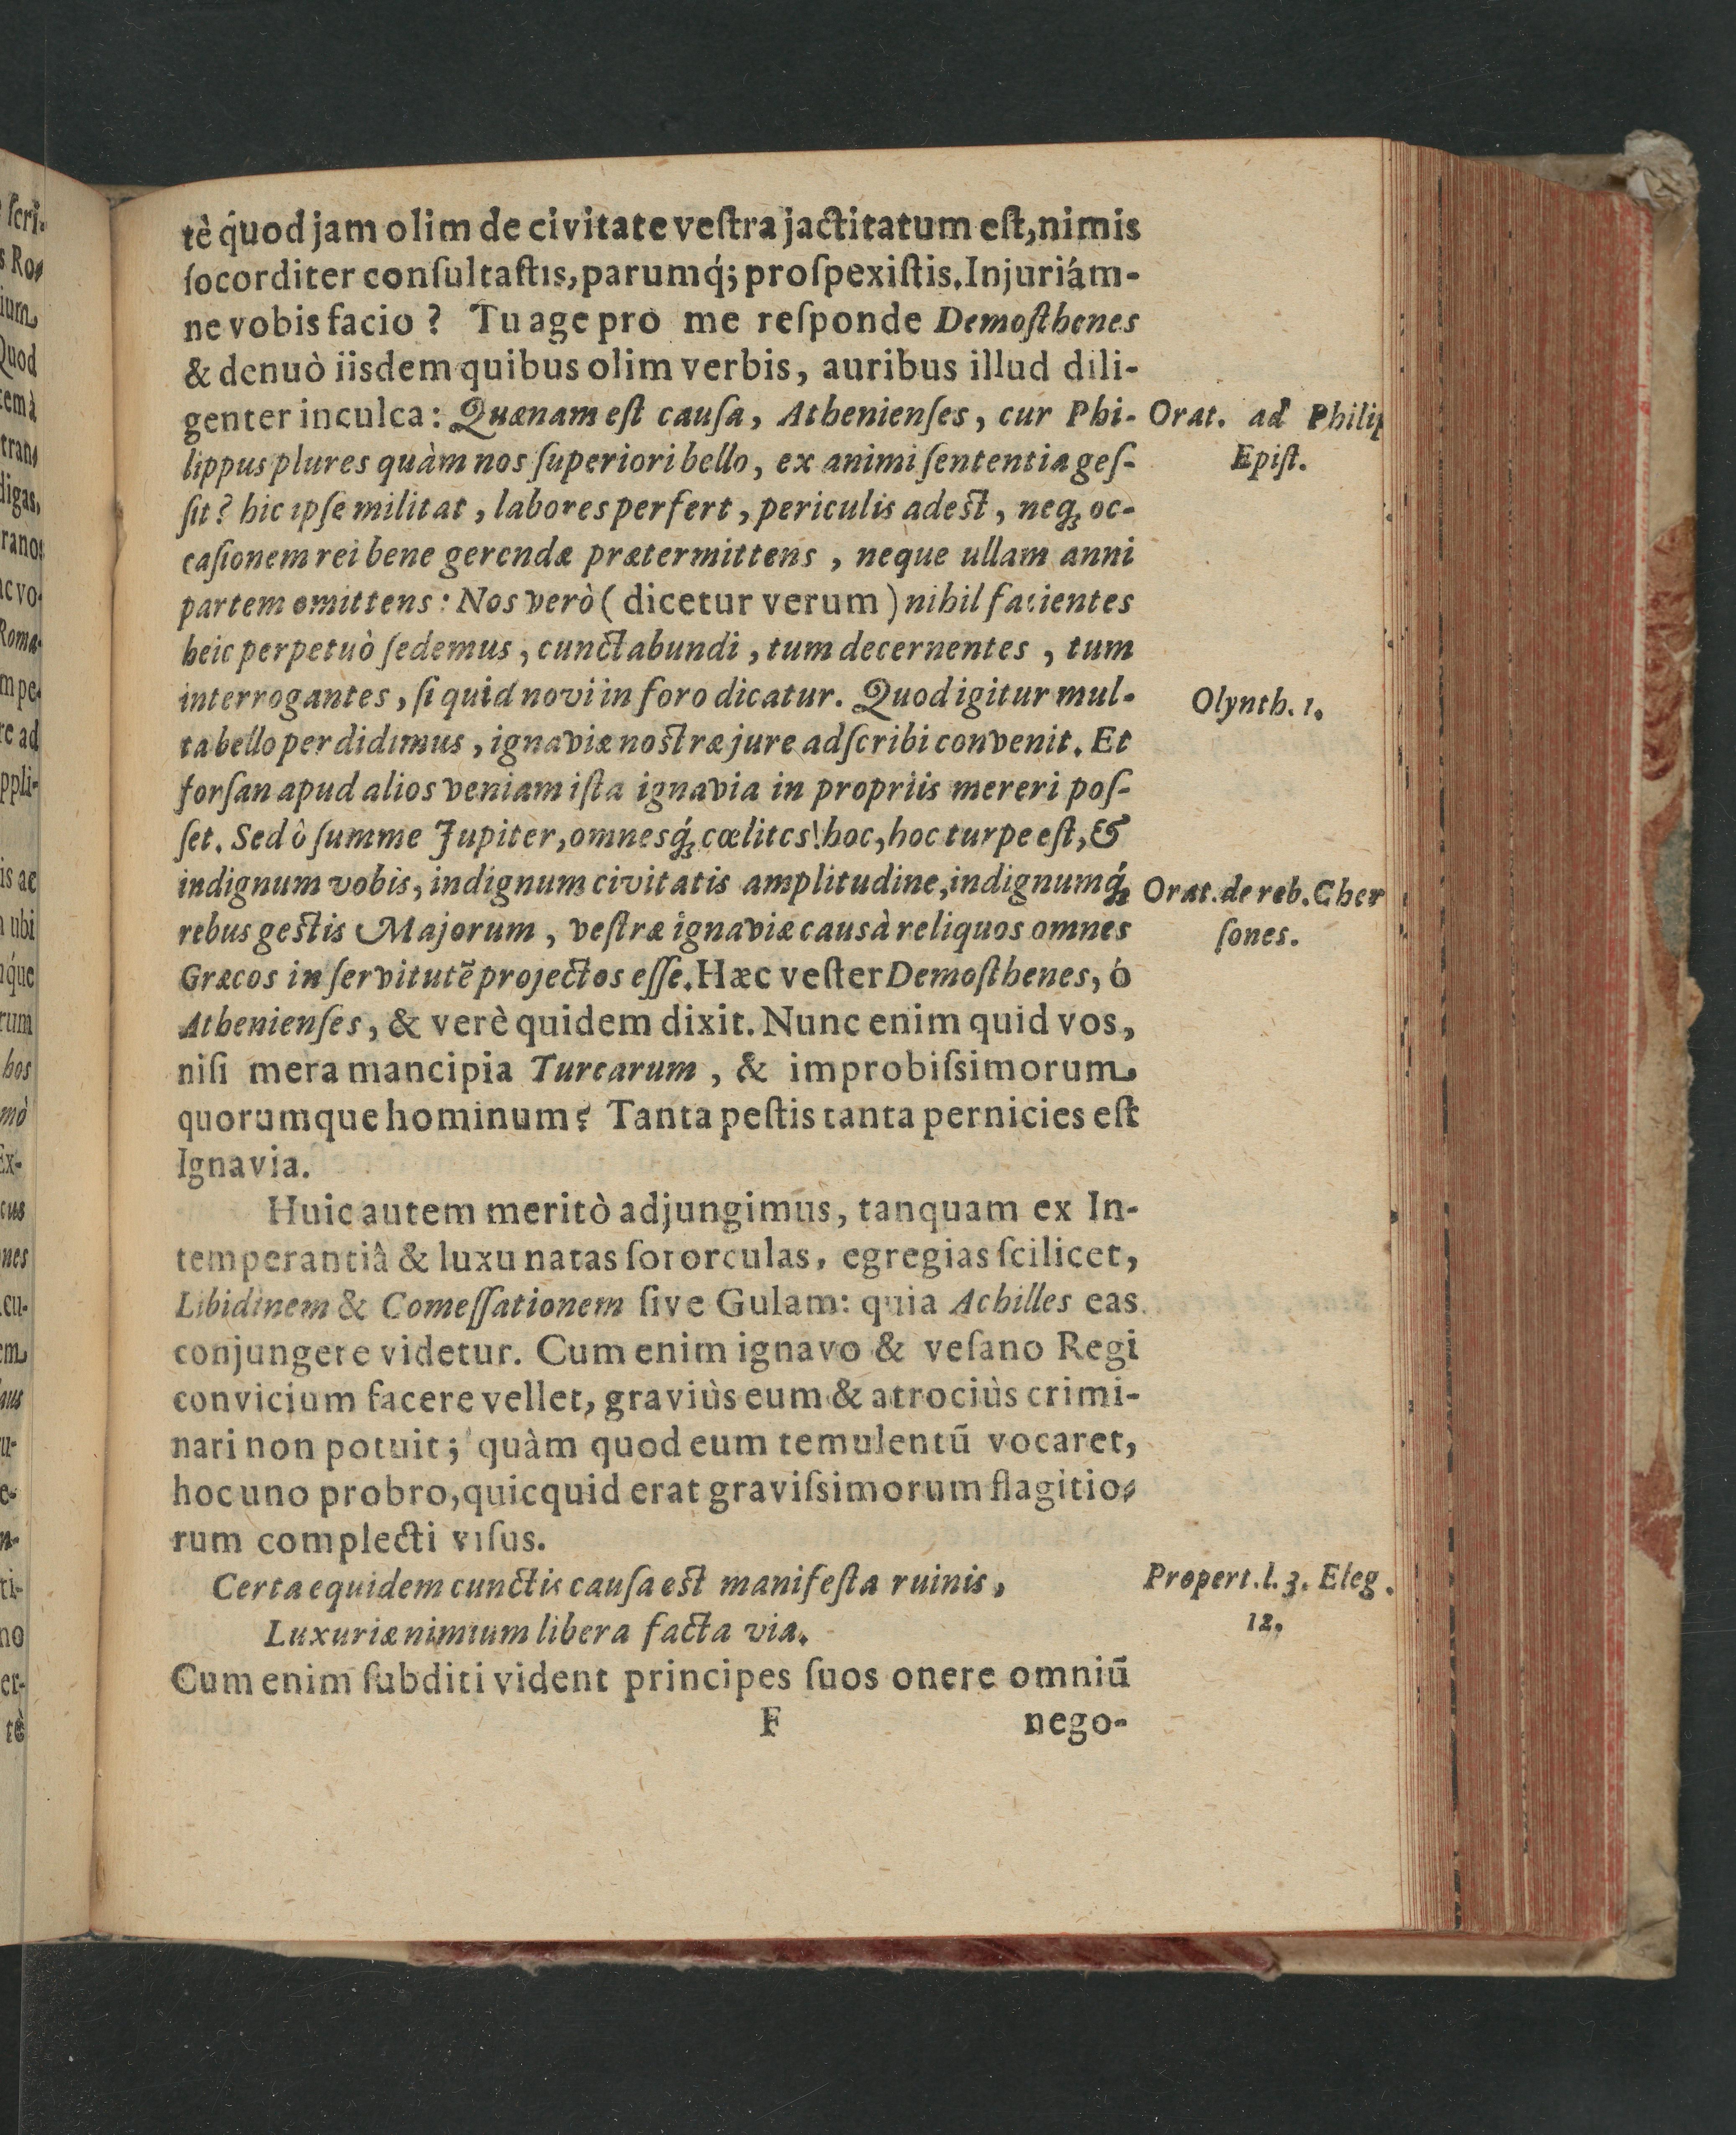 tè q́uod jam olim de civitate veſtra jactitatum eſt, nimis
ſocorditer conſultaſtis, parumq́; proſpexiſtis. Injuriám-
ne vobis facio ? Tu age prò me reſponde Demoſthenes
& denuò iisdem quibus olim verbis, auribus illud dili-
genter inculca: Quænam eſt cauſa, Athenienſes, cur Phi-
Orat. ad Philip
lippus plures quàm nos ſuperiori bello, ex animi ſententia geſ-
Epiſt.
ſit? hic ipſe militat, labores perfert, periculis adest, neq; oc-
caſionem rei bene gerendæ prætermittens, neque ullam anni
partem omittens: Nos verò ( dicetur verum ) nihil facientes
heic perpetuò ſedemus, cunctabundi, tum decernentes, tum
interrogantes, ſi quid novi in foro dicatur. Quod igitur mul-
Olynth. 1.
ta bello perdidimus, ignaviæ nostræ jure adſcribi convenit. Et
forſan apud alios veniam iſta ignavia in propriis mereri poſ-
ſet. Sed ô ſumme Jupiter, omnesq́; cœlites! hoc, hoc turpe eſt, &
indignum vobis, indignum civitatis amplitudine, indignumq́;
Orat. de reb. Cher
rebus gestis Majorum, veſtræ ignaviæ causà reliquos omnes
ſones.
Græcos in ſervitutẽ projectos eſſe. Hæc veſter Demoſthenes, ó
Athenienſes, & verè quidem dixit. Nunc enim quid vos,
niſi mera mancipia Turcarum, & improbiſsimorum
quorumque hominum? Tanta peſtis tanta pernicies eſt
Ignavia.
Huic autem meritò adjungimus, tanquam ex In-
temperantiâ & luxu natas ſororculas, egregias ſcilicet,
Libidinem & Comeſſationem ſive Gulam: quia Achilles eas
conjungere videtur. Cum enim ignavo & veſano Regi
convicium facere vellet, graviùs eum & atrociùs crimi-
nari non potuit; quàm quod eum temulentũ vocaret,
hoc uno probro, quicquid erat graviſsimorum flagitio-
rum complecti viſus.
Certa equidem cunctis cauſa est manifeſta ruinis,
Propert. l. 3. Eleg.
Luxuriæ nimium libera facta via.
12.
Cum enim ſubditi vident principes ſuos onere omniũ
F nego-